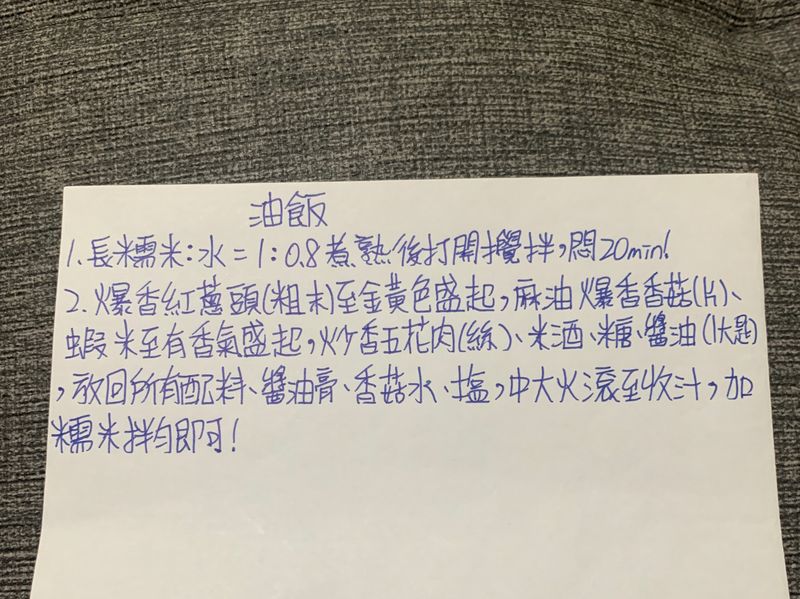 油飯
1. 長糯米:水=1:0.8煮熟後打開攪拌,悶20min!
2. 爆香紅蔥頭(粗末)至金黃色盛起,麻油爆香香菇(片)、
蝦米至有香氣盛起,炒香五花肉(絲)、米酒、糖、醬油(1大匙)
,放回所有配料、醬油膏、香菇水、塩,中大火滾至收汁,加
糯米拌勻即可!